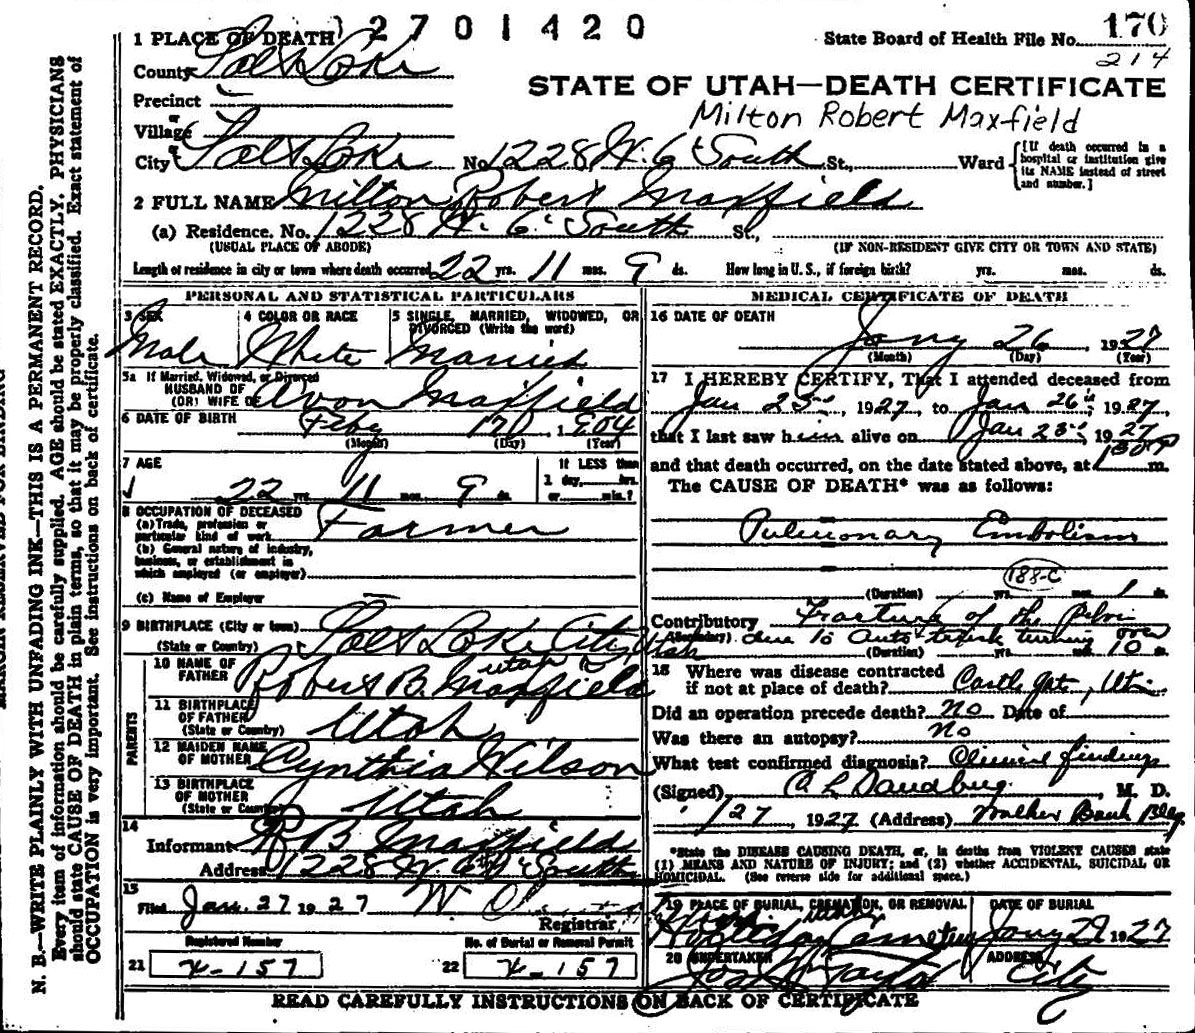 2701420
1 PLACE OF DEATH
State Board of Health File No. 170
214
County Salt Lake
STATE OF UTAH—DEATH CERTIFICATE
Precinct
Milton Robert Maxfield
or
Village
or
City Salt Lake No. 1228 W. 6 South St., Ward
[If death occurred in a hospital or institution give its NAME instead of street and number.]
2 FULL NAME Milton Robert Maxfield
(a) Residence. No. 1228 W. 6 South St.,
(USUAL PLACE OF ABODE) (IF NON-RESIDENT GIVE CITY OR TOWN AND STATE)
Length of residence in city or town where death occurred 22 yrs. 11 mos. 9 ds. How long in U. S., if foreign birth? yrs. mos. ds.
PERSONAL AND STATISTICAL PARTICULARS
3 SEX 4 COLOR OR RACE 5 SINGLE, MARRIED, WIDOWED, OR DIVORCED (Write the word)
Male White Married
5a If Married, Widowed, or Divorced
HUSBAND OF
(OR) WIFE OF Avon Maxfield
6 DATE OF BIRTH Feby 17 1904
(Month) (Day) (Year)
7 AGE If LESS than
1 day, hrs.
22 yrs. 11 mos. 9 ds. or min.?
8 OCCUPATION OF DECEASED
(a) Trade, profession or
particular kind of work Farmer
(b) General nature of industry,
business, or establishment in
which employed (or employer)
(c) Name of Employer
9 BIRTHPLACE (City or town) Salt Lake City
(State or Country) Utah
10 NAME OF
FATHER Robert B. Maxfield
PARENTS
11 BIRTHPLACE
OF FATHER Utah
(State or Country)
12 MAIDEN NAME
OF MOTHER Cynthia Wilson
13 BIRTHPLACE
OF MOTHER Utah
(State or Country)
14
Informant R B Maxfield
Address 1228 W. 6 South
15
Filed Jan. 27 1927 W
Registrar
Registered Number No. of Burial or Removal Permit
21 157 22 157
MEDICAL CERTIFICATE OF DEATH
16 DATE OF DEATH
Jany 26, 1927
(Month) (Day) (Year)
17 I HEREBY CERTIFY, That I attended deceased from
Jan 25, 1927, to Jan 26, 1927,
that I last saw him alive on Jan 25, 1927
and that death occurred, on the date stated above, at 130 P m.
The CAUSE OF DEATH* was as follows:
Pulmonary Embolism
188-C
(Duration) yrs. mos. 1 ds.
Contributory Fracture of the Pelvis
(Secondary) due to Auto truck turning over
(Duration) yrs. mos. 10 ds.
18 Where was disease contracted
if not at place of death? Castle Gate, Utah
Did an operation precede death? No Date of
Was there an autopsy? No
What test confirmed diagnosis? Clinical findings
(Signed) , M. D.
1/27, 1927 (Address) Walker Bank Bldg.
*State the DISEASE CAUSING DEATH, or, in deaths from VIOLENT CAUSES state
(1) MEANS AND NATURE OF INJURY; and (2) whether ACCIDENTAL, SUICIDAL OR
HOMICIDAL. (See reverse side for additional space.)
19 PLACE OF BURIAL, CREMATION, OR REMOVAL DATE OF BURIAL
Cemetery Jany 29 1927
20 UNDERTAKER ADDRESS
Jos Taylor City
READ CAREFULLY INSTRUCTIONS ON BACK OF CERTIFICATE
N. B.—WRITE PLAINLY WITH UNFADING INK—THIS IS A PERMANENT RECORD.
Every item of information should be carefully supplied. AGE should be stated EXACTLY. PHYSICIANS
should state CAUSE OF DEATH in plain terms, so that it may be properly classified. Exact statement of
OCCUPATION is very important. See instructions on back of certificate.